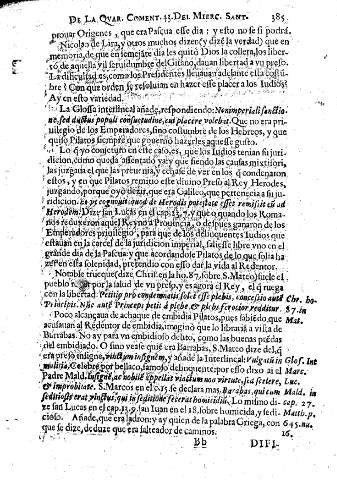 De La Qvar. Coment. 33. Del Mierc. Sant. 385
prouar Origenes, que era Pascua esse dia: y esto no se si podrá.
Nicolao de Lira, y otros muchos dizen (y dizē la verdad) que en
memoria, de que en semejāte dia les quitò Dios la collera, los liber
tó de aquesta vil seruidumbre del Gitano, dauan libertad a vn preso.
La dificultad es, como los Presidentes lleuauan adelante esta costū
bre? Con que orden se resoluian en hazer esse placer a los Iudios?
Ay en esto variedad.
La Glossa interlineal añade, respondiendo: Non imperiali sanctio
ne, sed ductus populi consuetudine, cui placere volebat. Que no era pri
uilegio de los Emperadores, sino costumbre de los Hebreos, y que
quiso Pilatos siempre que gouernò hazerles aquesse gusto.
Lo q̃ yo conjeturo en este caso, es, que los Iudios tenian su juri
dicion, como queda assentado ya y que siendo las causas mixti fori,
las juzgaua el que las preuenia, y echase de ver en los q̃ condenaron
estos, y en que Pilatos remitio este diuino Preso al Rey Herodes,
juzgando, porque oyò dezir, que era Galileo, que pertenecia a su ju
ridicion. Et vt cognouit quod de Herodis potestate esset remisit eū ad
Herodem. Dize san Lucas en el cap. 23. y que quando los Roma
nos reduxeron aquel Reyno a Prouincia, o despues ganaron de los
Emperadores priuilegio, para que de los delinquentes Iudios que
estauan en la carcel de la juridicion imperial, saliesse libre vno en el
grande dia de la Pascua: y que acordandose Pilatos de lo que solia ha
zer en esta solenidad, pretendio con esso dar la vida al Redentor.
Notable trueque (dize Chris. en la ho. 87. sobre S. Mateo) suele el
pueblo rogar por la salud de vn preso, y es agora el Rey, el q̃ ruega
con la libertad. Petitio pro condemnatis solet esse plebis, concessio autē Chr. ho.
Principis. Nūc autē Princeps petit à plebe & plebs ferocior redditur. 87. in
Poco alcançaua de achaque de embidia Pilatos, pues sabiēdo que Mat.
acusauan al Redentor de embidia, imaginò que lo libraua à vista de
Barrabas. No ay para vn embidioso delito, como las buenas prēdas
del embidiado. O sino vease quiē era Barrabas, S. Mateo dize del, q̃
era preso insigne, vinctum insignem, y añade la Interlineal: Vulgatū in Glos. Int
malitia. Celebre por bellaco, famoso delinquente: por esso dixo el Marc.
Padre Mald. Insignē, ac nobilē appellat vinctum non virtute, sed scelere, Luc.
& improbitate. S. Marcos en el c. 15 se declara mas, Barabas, qui cum Mald. in
seditiosis erat vinctus, qui in seditione fecerat homicidiū. Lo mismo di- cap. 27.
ze san Lucas en el cap. 23. 9. san Iuan en el 18. sobre homicida, y sedi- Matth. p.
cioso. Añade, que era ladron: y ay quien de la palabra Griega, con 645. nu.
que se dize, deduze que era salteador de caminos. 16.
Bb DIFI-